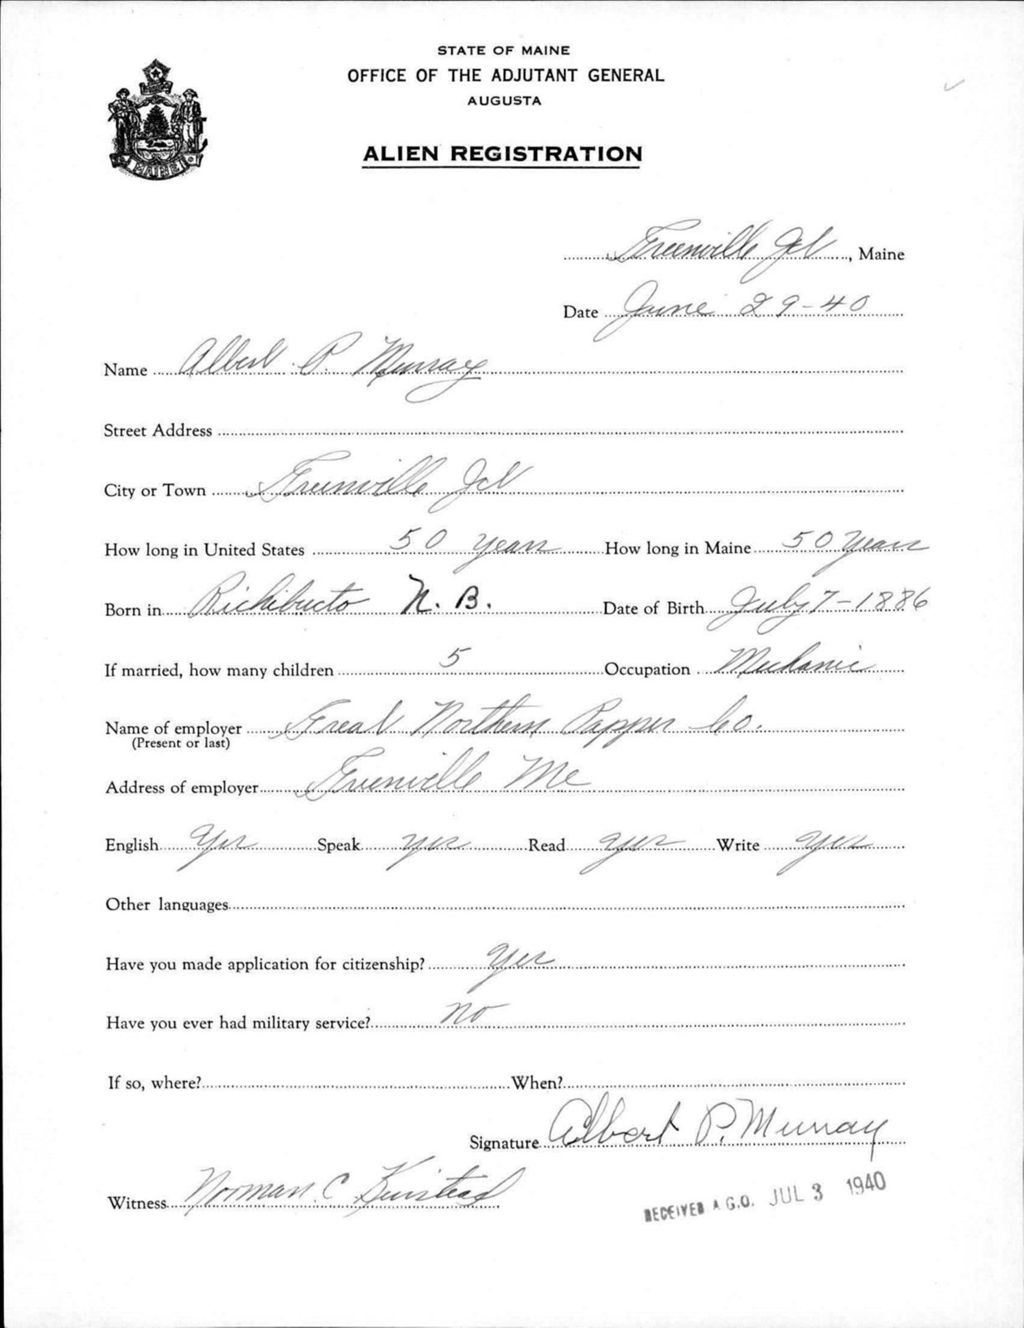 STATE OF MAINE
OFFICE OF THE ADJUTANT GENERAL
AUGUSTA
ALIEN REGISTRATION
MAINE
Greenville Jct, Maine
Date June 29-40
Name Albert P. Murray
Street Address
City or Town Greenville Jct
How long in United States 50 years How long in Maine 50 years
Born in Richibucto N. B. Date of Birth July 7-1886
If married, how many children 5 Occupation Mechanic
Name of employer Great Northern Papper Co.
(Present or last)
Address of employer Greenville Me
English Yes Speak yes Read yes Write yes
Other languages
Have you made application for citizenship? Yes
Have you ever had military service? no
If so, where? When?
Signature Albert P. Murray
Witness Norman C
RECEIVED A.G.O. JUL 3 1940